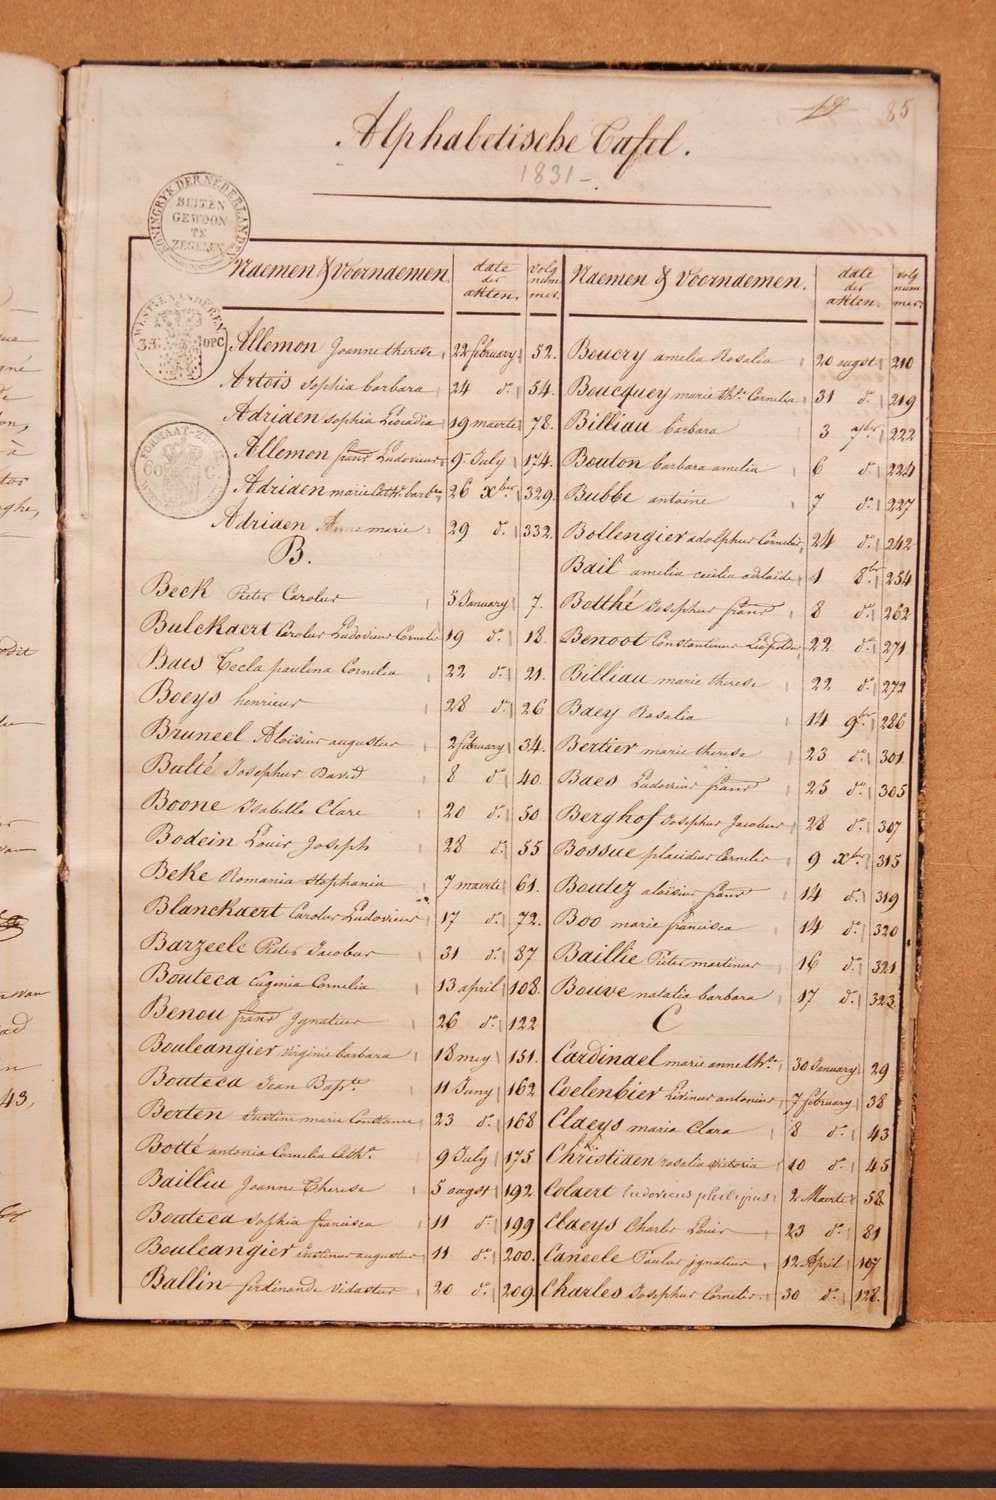 85
Alphabetische Tafel.
1831-
KONINGRYK DER NEDERLANDEN
BUITEN
GEWOON
TE
ZEGELEN
Naemen & Voornaemen.
date der akten.
volg num mer.
WESTVLAENDEREN
Allemon Joanne therese 22 february 52.
Artois Sophia barbara 24 do. 54.
Adriaen Sophia Leocadia 19 maerte 78.
Allemon frans Ludovicus 9 July 174.
Adriaen marie Cath. barbra 26 xber 329.
Adriaen Anne marie 29 do. 332.
B.
Beck Pieter Carolus 5 January 7.
Bulckaert Carolus Ludovicus Cornelis 19 do. 18.
Baes Tecla paulina Cornelia 22 do. 21.
Boeys henricus 28 do. 26
Bruneel Aloisius augustus 2 february 34.
Bulté Josephus David 8 do. 40.
Boone Isabelle Clare 20 do. 50
Bodein Louis Joseph 28 do. 55
Beke Romania Stephania 7 maerte 61.
Blanckaert Carolus Ludovicus 17 do. 72.
Barzeele Pieter Jacobus 31 do. 87
Bouteca Eugenia Cornelia 13 april 108.
Benou frans Ignatius 26 do. 122
Bouleangier virginie barbara 18 mey 151.
Bouteca Jean Bapte. 11 Juny 162
Berten Justine marie Constance 23 do. 168
Botté antonia Cornelia Cath. 9 July 175
Bailliu Joanne Therese 5 augst 192.
Bouteca Sophia francisca 11 do. 199
Bouleangier Justinus augustus 11 do. 200.
Ballin ferdinande vedastus 20 do. 209.
Naemen & Voornaemen.
date der akten.
volg num mer.
Boucry amelia Rosalia 20 augst 210
Boucquey marie the. Cornelia 31 do. 219
Billiau barbara 3 7ber 222
Bouton barbara amelia 6 do. 224
Bubbe antoine 7 do. 227
Bollengier adolphus Cornelis 24 do. 242
Bail amelia cecilia adelaide 1 8ber 254
Botthé Josephus frans 8 do. 262
Benoot Constantinus Leopoldus 22 do. 271
Billiau marie therese 22 do. 272
Baey Rosalia 14 9ber 286
Bertier marie therese 23 do. 301
Baes Ludovicus frans 25 do. 305
Berghof Josephus Jacobus 28 do. 307
Bossue placidus Cornelis 9 xber 315
Boutez aloisius frans 14 do. 319
Boo marie francisca 14 do. 320
Baillie Pieter martinus 16 do. 321
Bouve natalia barbara 17 do. 323
C
Cardinael marie anne the. 30 January 29
Coelenbier Livinus antonius 7 february 38
Claeys maria Clara 8 do. 43
Christiaen rosalia victoria 10 do. 45
Colaert ludovicus philippus 2 Maerte 58
Claeys Charles Louis 23 do. 81
Caneele Paulus ignatius 12 April 107
Charles Josephus Cornelis. 30 do. 128.